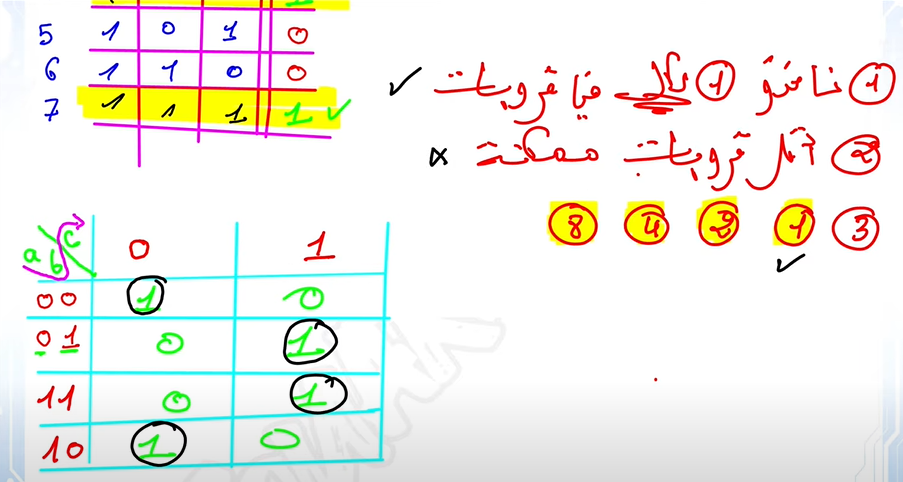 5 1 0 1 0
6 1 1 0 0
7 1 1 1 1 ✓
① ناخذو ① قروبات ✓
② أقل قروبات ممكنة ×
③ ① ② ④ ⑧
✓
a b c 0 1
00 1 0
01 0 1
11 0 1
10 1 0